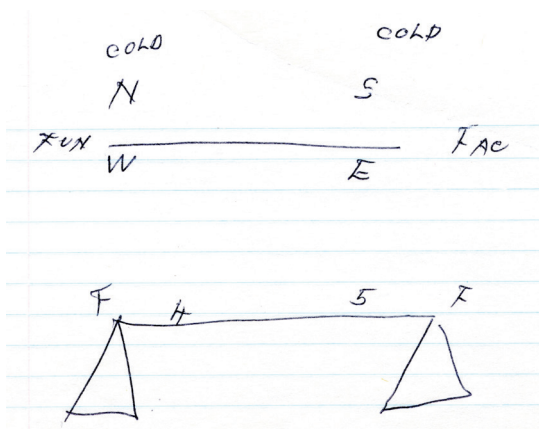 COLD COLD
N S
FUN FAC
W E
F 4 5 F